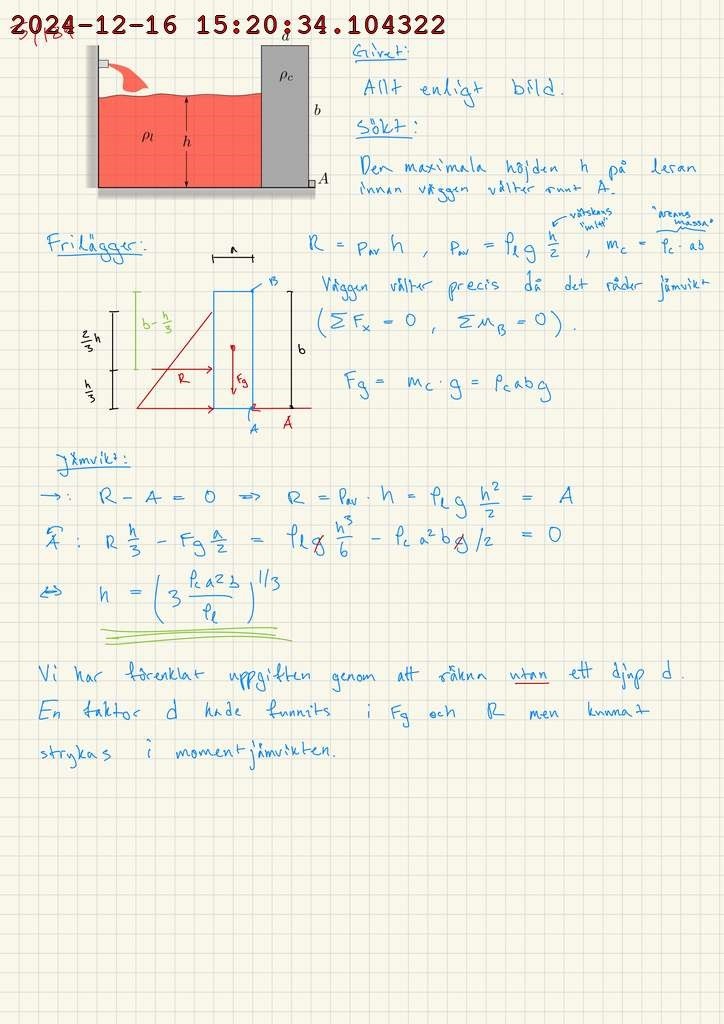 2024-12-16 15:20:34.104322
5/184
a
ρc
b
ρl
h
A
Givet:
Allt enligt bild.
Sökt:
Den maximala höjden h på leran
innan väggen välter runt A.
Frilägger:
R = Pav h , Pav = ρl g h/2 , mc = ρc · ab
vätskans "mitt"
"areans massa"
Väggen välter precis då det råder jämvikt
(ΣFx = 0 , ΣMB = 0).
Fg = mc · g = ρc abg
a
B
b - h/3
2/3 h
h/3
R
Fg
b
A
A
Jämvikt:
→: R - A = 0 => R = Pav · h = ρl g h²/2 = A
A: R h/3 - Fg a/2 = ρl g h³/6 - ρc a²bg/2 = 0
⇔ h = (3 ρc a²b/ρl)^1/3
Vi har förenklat uppgiften genom att räkna utan ett djup d.
En faktor d hade funnits i Fg och R men kunnat
strykas i momentjämvikten.